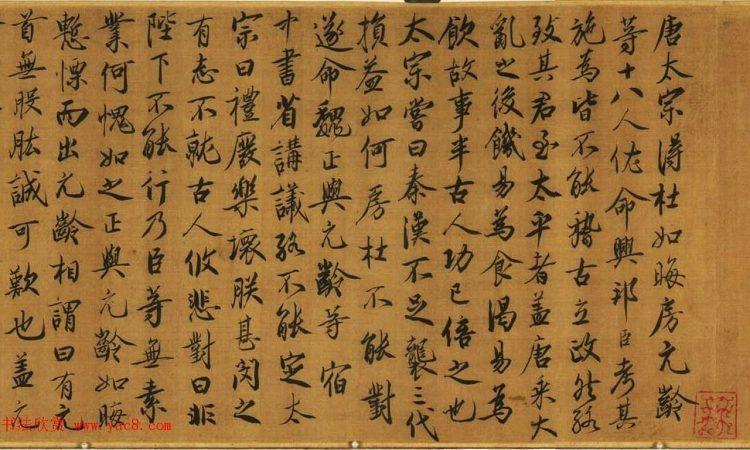 唐太宗得杜如晦房元齡
等十八人佐命興邦臣考其
施為皆不能稽古立政然終
致其君至太平者蓋唐乘大
亂之後饑易為食渴易為
飲故事半古人功已倍之也
太宗嘗曰秦漢不足襲三代
損益如何房杜不能對
遂命魏正與元齡等宿
中書省講議終不能定太
宗曰禮廢樂壞朕甚閔之
有志不就古人攸悲對曰非
陛下不能行乃臣等無素
業何愧如之正與元齡如晦
慙慄而出元齡相謂曰有元
首無股肱誠可歎也蓋元
书法欣赏 www.yac8.com